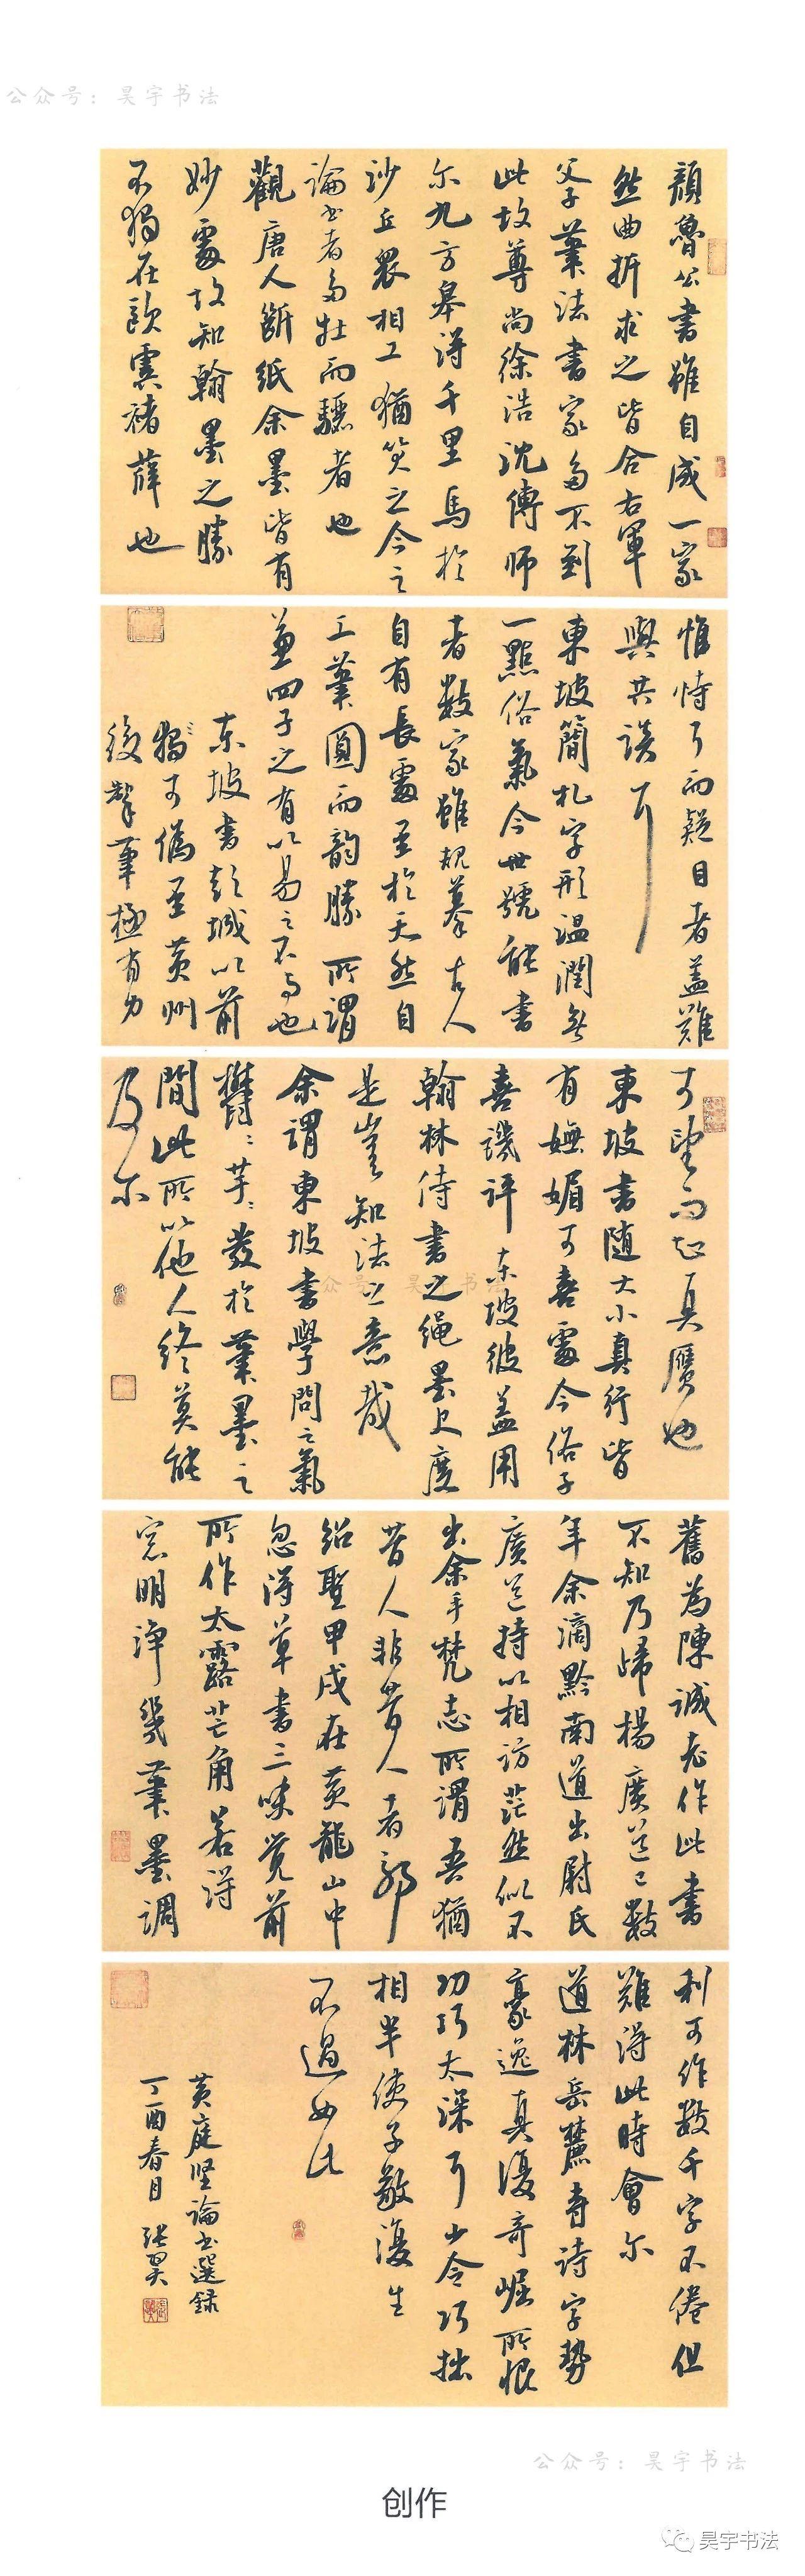 公众号：昊宇书法
顏魯公書雖自成一家
然曲折求之皆合右軍
父子筆法書家多不到
此故尊尚徐浩沈傳師
尔九方皋得千里馬於
沙丘衆相工猶笑之今之
論書者多牡而驪者也
觀唐人斷紙余墨皆有
妙處故知翰墨之勝
不獨在歐虞褚薛也
惟恃耳而疑目者盖難
與共談耳
東坡簡札字形温潤無
一點俗氣今世號能書
者數家雖規摹古人
自有長處至於天然自
工筆圓而韵勝所謂
兼四子之有以易之不与也
东坡書彭城以前
猶可僞至黄州
後掣筆極有力
可望而知真贋也
東坡書随大小真行皆
有嫵媚可喜處今俗子
喜譏評东坡彼盖用
翰林侍書之绳墨尺度
是豈知法之意哉
余謂東坡書學問之氣
鬱々芊々發於筆墨之
間此所以他人终莫能
及尔
公众号：昊宇书法
舊為陳誠老作此書
不知乃歸楊廣道已數
年余謫黔南道出尉氏
廣道持以相訪茫然似不
出余手梵志所謂吾猶
昔人非昔人者邪
绍聖甲戌在黄龍山中
忽得草書三昧覚前
所作太露芒角若得
窓明淨几筆墨調
利可作數千字不倦但
難得此時會尔
道林岳麓寺詩字勢
豪逸真復奇崛所恨
功巧太深耳少令巧拙
相半使子敬復生
不過如此
黄庭坚論書選録
丁酉春月 张昊
公众号：昊宇书法
创作
昊宇书法